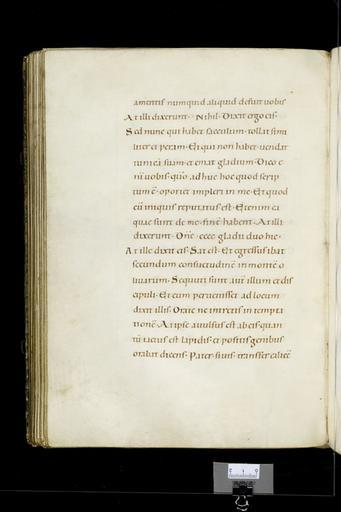 amentis numquid aliquid defuit uobis
At illi dixerunt · Nihil · Dixit ergo eis ·
Sed nunc qui habet sacculum · tollat simi
liter et peram · Et qui non habet · uendat
tunicā suam · et emat gladium · Dico e
nī uobis · qm̄o adhuc hoc quod scrip
tum ē · oportet impleri in me · Et quod
cū iniquis reputatus est · Etenim ea
quae sunt de me · finē habent · At illi
dixerunt · Dn̄e · ecce gladii duo hic ·
At ille dixit eis · Sat est · Et egressus ibat
secundum consuetudinē in montē o
liuarum · Secuti sunt autē illum et dis
cipuli · Et cum peruenisset ad locum
dixit illis · Orate ne intretis in tempta
tionē · At ipse auulsus est ab eis quan
tū iactus est lapidis · et positis genibus
orabat dicens · Pater · si uis · transfer calicē